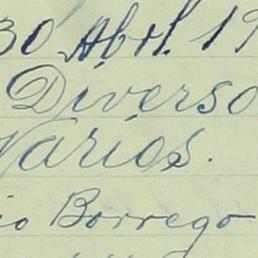 30 Abril. 19
Diverso
Varios.
io Borrego